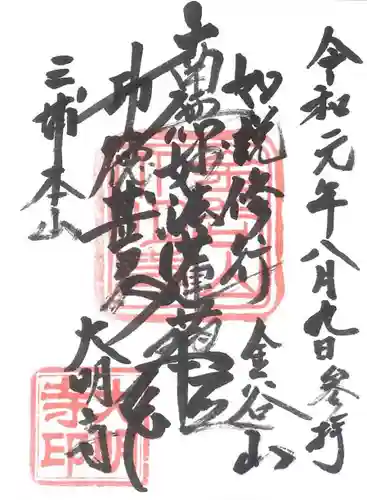 令和元年八月九日参拝
如説修行
金谷山
南無妙法蓮華経
功徳甚多
大明寺
三浦本山
大明
寺印